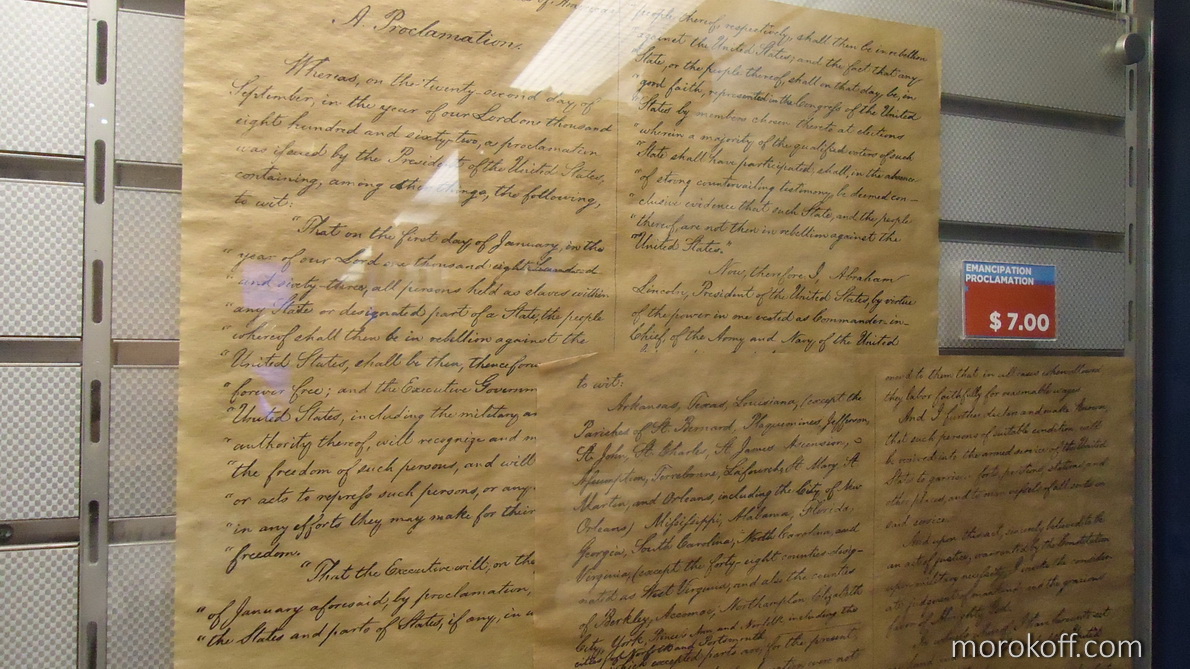 A Proclamation.
Whereas, on the twenty-second day of
September, in the year of our Lord one thousand
eight hundred and sixty two, a proclamation
was issued by the President of the United States,
containing, among other things, the following,
to wit:
"That on the first day of January, in the
"year of our Lord one thousand eight hundred
"and sixty-three, all persons held as slaves within
"any State or designated part of a State, the people
"whereof shall then be in rebellion against the
"United States, shall be then, thencefor
"forever free; and the Executive Governm
"United States, including the military an
"authority thereof, will recognize and m
"the freedom of such persons, and will
"or acts to repress such persons, or any
"in any efforts they may make for their
"freedom.
"That the Executive will, on the
"of January aforesaid, by proclamation,
"the States and parts of States, if any, in
people thereof, respectively, shall then be in rebellion
against the United States; and the fact that any
State, or the people thereof, shall on that day be, in
"good faith, represented in the Congress of the United
"States by members chosen thereto at elections
"wherein a majority of the qualified voters of such
"State shall have participated, shall, in the absence
"of strong countervailing testimony, be deemed con-
"clusive evidence that such State, and the people
"thereof, are not then in rebellion against the
"United States."
Now, therefore I, Abraham
Lincoln, President of the United States, by virtue
of the power in me vested as Commander-in-
Chief, of the Army and Navy of the United
to wit:
Arkansas, Texas, Louisiana, (except the
Parishes of St. Bernard, Plaquemines, Jefferson,
St. John, St. Charles, St. James Ascension,
Assumption, Terrebonne, Lafourche, St. Mary, St.
Martin, and Orleans, including the City of New
Orleans) Mississippi, Alabama, Florida,
Georgia, South Carolina, North Carolina, and
Virginia, (except the forty-eight counties desig-
nated as West Virginia, and also the counties
of Berkley, Accomac, Northampton, Elizabeth
City, York, Princess Ann, and Norfolk, including the
cities of Norfolk and Portsmouth
which excepted parts are, for the present,
to them that, in all cases when allowed,
they labor faithfully for reasonable wages.
And I further declare and make known,
that such persons of suitable condition, will
be received into the armed service of the United
States to garrison forts, positions, stations, and
other places, and to man vessels of all sorts in
said service.
And upon this act, sincerely believed to be
an act of justice, warranted by the Constitution,
upon military necessity, I invoke the consider-
ate judgment of mankind, and the gracious
favor of Almighty God.
EMANCIPATION
PROCLAMATION
$7.00
morokoff.com